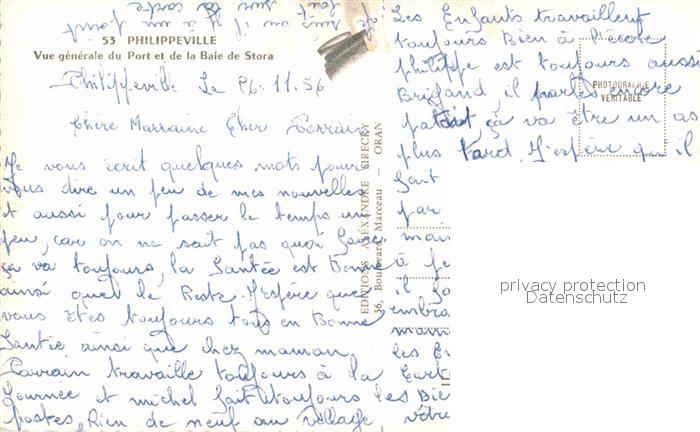 53 PHILIPPEVILLE
Vue générale du Port et de la Baie de Stora
Philippeville Le 26.11.56
Chère Marraine Cher Parrain
Je vous écrit quelques mots pour
vous dire un peu de mes nouvelles
et aussi pour passer le temps un
peu, car on ne sait pas quoi faire
ça va toujours, la Santée est Bonne
ainsi que le Reste. J'espère que
vous êtes toujours tous en Bonne
Santie ainsi que chez maman,
Parrain travaille toujours à la
Journée et michel fait toujours les Bie
postes, Rien de neuf au village,
EDITIONS ALEXANDRE SIRECKY
36, Boulevard Marceau - ORAN
Les Enfants travaillent
toujours Bien à l'école
philippe est toujours aussi
Brigand il parle encore
patait, ça va être un as
plus tard. J'espère qu'il
fait
par
mam
à
il
embra
les
vôtre
PHOTOGRAPHIE
VÉRITABLE
privacy protection
Datenschutz